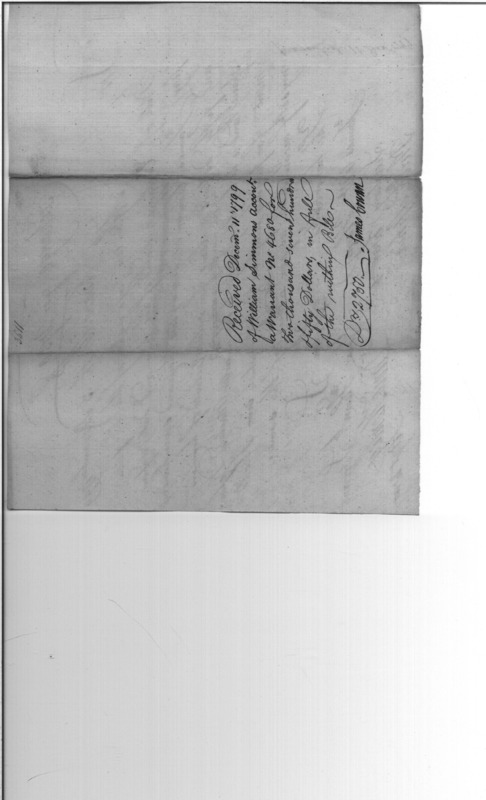 Received Decem. 11th 1799
of William Simmons Accont.
a Warrant No 4680 for
Two thousand seven hundred
& fifty Dollars, in full
of the within Bill
Ds 2750 James